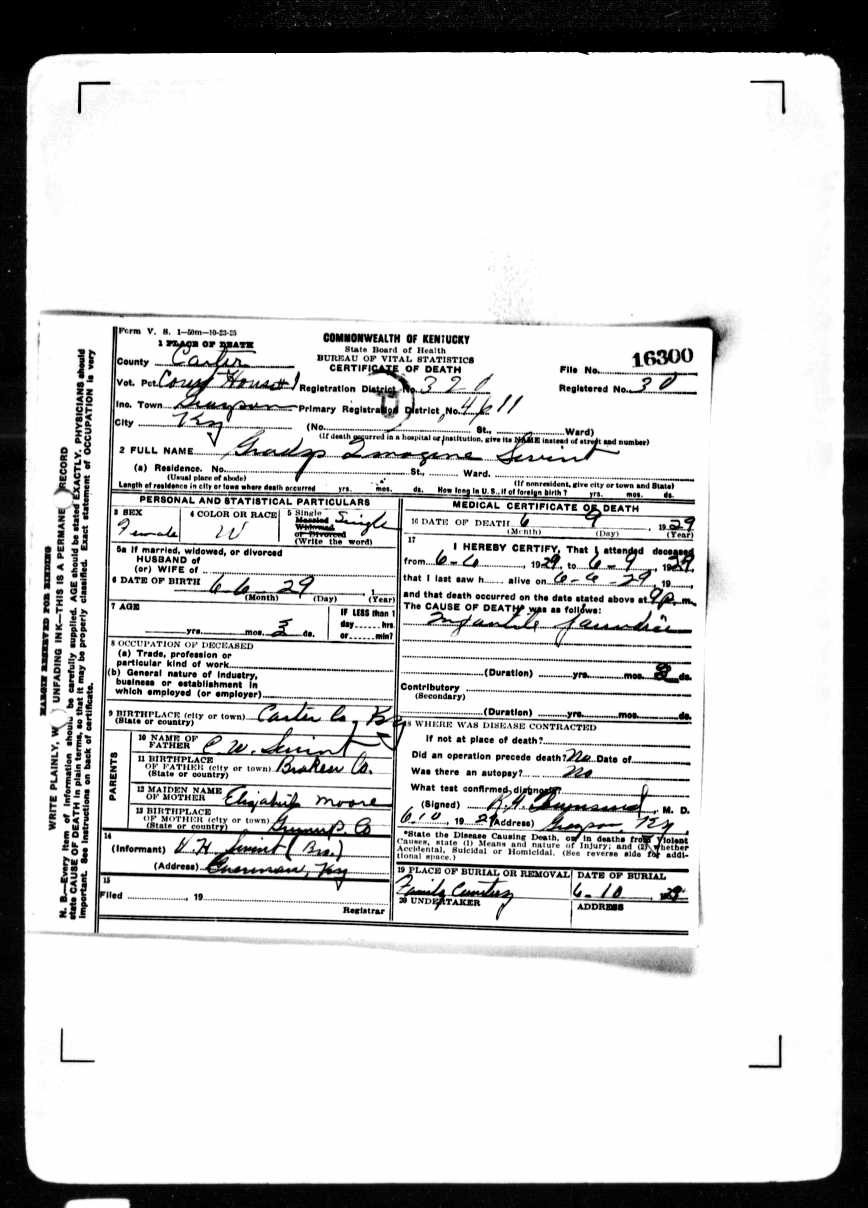 Form V. S. 1—50m—10-23-25
COMMONWEALTH OF KENTUCKY
State Board of Health
BUREAU OF VITAL STATISTICS
CERTIFICATE OF DEATH
1 PLACE OF DEATH
County Carter
File No. 16300
Vot. Pct. Court House #1 Registration District No. 320 Registered No. 30
Inc. Town Grayson Primary Registration District No. 4611
City Ky (No. St., Ward)
(If death occurred in a hospital or institution, give its NAME instead of street and number)
2 FULL NAME Imogine
(a) Residence. No. St., Ward.
(Usual place of abode) (If nonresident, give city or town and State)
Length of residence in city or town where death occurred yrs. mos. ds. How long in U. S., if of foreign birth? yrs. mos. ds.
PERSONAL AND STATISTICAL PARTICULARS
3 SEX Female
4 COLOR OR RACE W
5 Single Married Widowed or Divorced (Write the word) Single
5a If married, widowed, or divorced
HUSBAND of
(or) WIFE of
6 DATE OF BIRTH 6 6 29
(Month) (Day) (Year)
7 AGE yrs. mos. 3 ds.
IF LESS than 1
day hrs
or min?
8 OCCUPATION OF DECEASED
(a) Trade, profession or
particular kind of work
(b) General nature of industry,
business or establishment in
which employed (or employer)
9 BIRTHPLACE (city or town) Carter Co, Ky
(State or country)
PARENTS
10 NAME OF FATHER C. W.
11 BIRTHPLACE OF FATHER (city or town) Braken Co.
(State or country)
12 MAIDEN NAME OF MOTHER Elizabeth Moore
13 BIRTHPLACE OF MOTHER (city or town) Greenup Co
(State or country)
14
(Informant) H (Bro.)
(Address) Ky
15
Filed , 19
Registrar
MEDICAL CERTIFICATE OF DEATH
16 DATE OF DEATH 6 9, 1929
(Month) (Day) (Year)
17
I HEREBY CERTIFY, That I attended deceased
from 6-6 1929, to 6-9, 1929,
that I last saw h alive on 6-9-29, 19
and that death occurred on the date stated above at 9p m.
The CAUSE OF DEATH was as follows:
Infantile Jaundice
(Duration) yrs. mos. 3 ds.
Contributory
(Secondary)
(Duration) yrs. mos. ds.
18 WHERE WAS DISEASE CONTRACTED
If not at place of death?
Did an operation precede death? No Date of
Was there an autopsy? No
What test confirmed diagnosis?
(Signed) , M. D.
6-10, 1929 (Address) Grayson, Ky
*State the Disease Causing Death, or in deaths from Violent
Causes, state (1) Means and nature of Injury; and (2) whether
Accidental, Suicidal or Homicidal. (See reverse side for addi-
tional space.)
19 PLACE OF BURIAL OR REMOVAL Family Cemetery
DATE OF BURIAL 6-10, 1929
20 UNDERTAKER
ADDRESS
MARGIN RESERVED FOR BINDING
WRITE PLAINLY, W UNFADING INK—THIS IS A PERMANE RECORD
N. B.—Every item of information should be carefully supplied. AGE should be stated EXACTLY. PHYSICIANS should
state CAUSE OF DEATH in plain terms, so that it may be properly classified. Exact statement of OCCUPATION is very
important. See instructions on back of certificate.